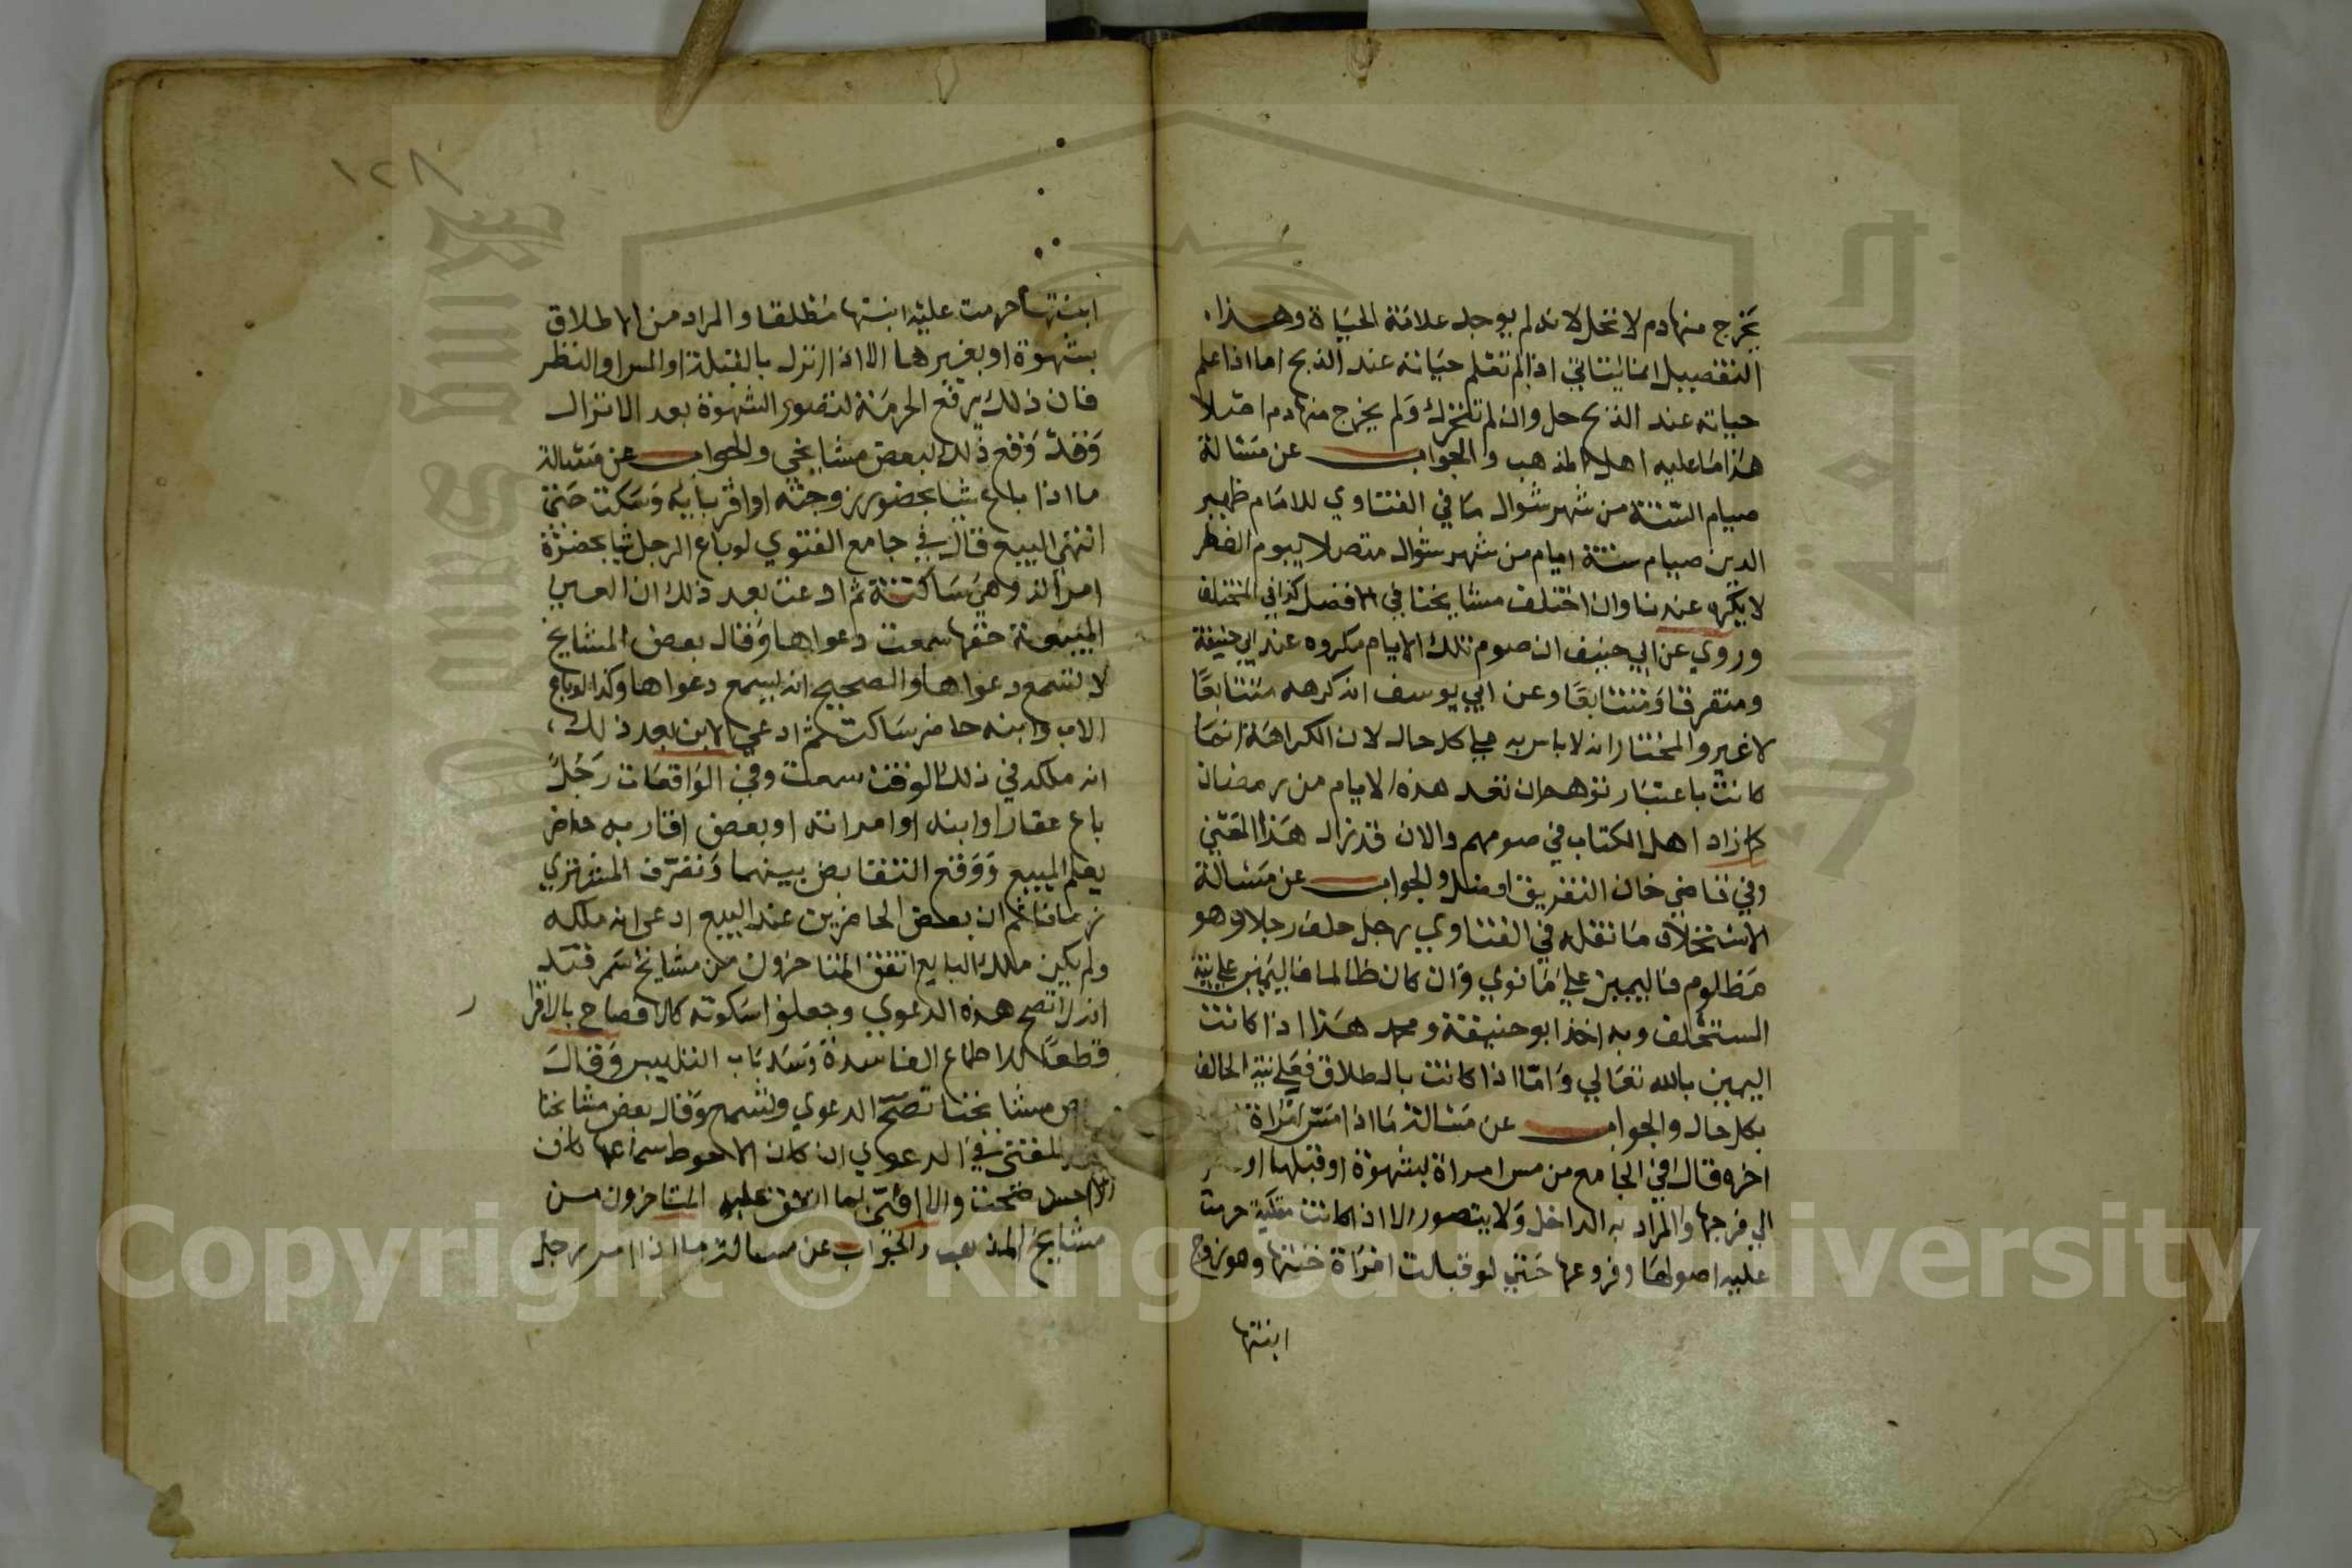 يخرج منها دم لا تحل لانه لم يوجد علامة الحياة وهذا
التفصيل انما يتاتي اذا لم تعلم حياته عند الذبح اما اذا علم
حياته عند الذبح حل وان لم تتحرك ولم يخرج منها دم اصلا
هذا ما عليه اهل المذهب والجواب عن مسالة
صيام الستة من شهر شوال ما في الفتاوي للامام ظهير
الدين صيام ستة ايام من شهر شوال متصلا بيوم الفطر
لا يكره عندنا وان اختلف مشايخنا في الافضل كذا في المختلف
وروي عن ابي حنيف ان صوم تلك الايام مكروه عند ابي حنيفة
ومتفرقا ومتتابعا وعن ابي يوسف انه كرهه متتابعا
لا غير والمختار انه لا باس به علي كل حال لان الكراهة انما
كانت باعتبار توهم ان تعد هذه الايام من رمضان
كما زاد اهل الكتاب في صومهم والان قد زال هذا المعني
وفي قاضي خان التفريق افضل والجواب عن مسالة
الاستحلاف ما نقله في الفتاوي رجل حلف رجلا وهو
مظلوم فاليمين علي ما نوي وان كان ظالما فاليمين علي نية
المستحلف وبه اخذ ابو حنيفة ومحمد هذا اذا كانت
اليمين بالله تعالي واما اذا كانت بالطلاق فعلي نية الحالف
بكل حال والجواب عن مسالة ما اذا مس امراة
اخره قال في الجامع من مس امراة بشهوة او قبلها او
الي فرجها والمراد به الداخل ولا يتصور الا اذا كانت متكية حرمت
عليه اصولها وفروعها حتي لو قبلت امراة ختنها وهو زوج
ابنتها
١٢٨
ابنتها حرمت عليه ابنتها مطلقا والمراد من الاطلاق
بشهوة او بغيرها الا اذا انزل بالقبلة او المس او النظر
فان ذلك يرفع الحرمة لتصور الشهوة بعد الانزال
وقد وقع ذلك لبعض مشايخي والجواب عن مسالة
ما اذا باع شيا بحضور زوجته او اقربايه وسكت حتي
انتهي البيع قال في جامع الفتوي لو باع الرجل شيا بحضرة
امراته وهي ساكتة ثم ادعت بعد ذلك ان العين
المبيعة حقها سمعت دعواها وقال بعض المشايخ
لا تسمع دعواها والصحيح انه يسمع دعواها وكذا لو باع
الاب وابنه حاضر ساكت ثم ادعي الابن بعد ذلك
انه ملكه في ذلك الوقت سمعت وفي الواقعات رجل
باع عقارا وابنه او امراته او بعض اقاربه حاضر
يعلم البيع ووقع التقابض بينهما وتصرف المشتري
زمانا ثم ان بعض الحاضرين عند البيع ادعي انه ملكه
ولم يكن ملك البايع اتفق المتاخرون من مشايخ سمرقند
انه لا تصح هذه الدعوي وجعلوا سكوته كالافصاح بالاقرار
قطعا للاطماع الفاسدة وسد باب التلبيس وقال
مشايخنا تصح الدعوي وتسمع وقال بعض مشايخنا
المفتي في الدعوي ان كان الاحوط سماعها كان
الاحسن صحت والا افتي بما اتفق عليه المتاخرون من
مشايخ المذهب والجواب عن مسالة ما اذا امر رجل